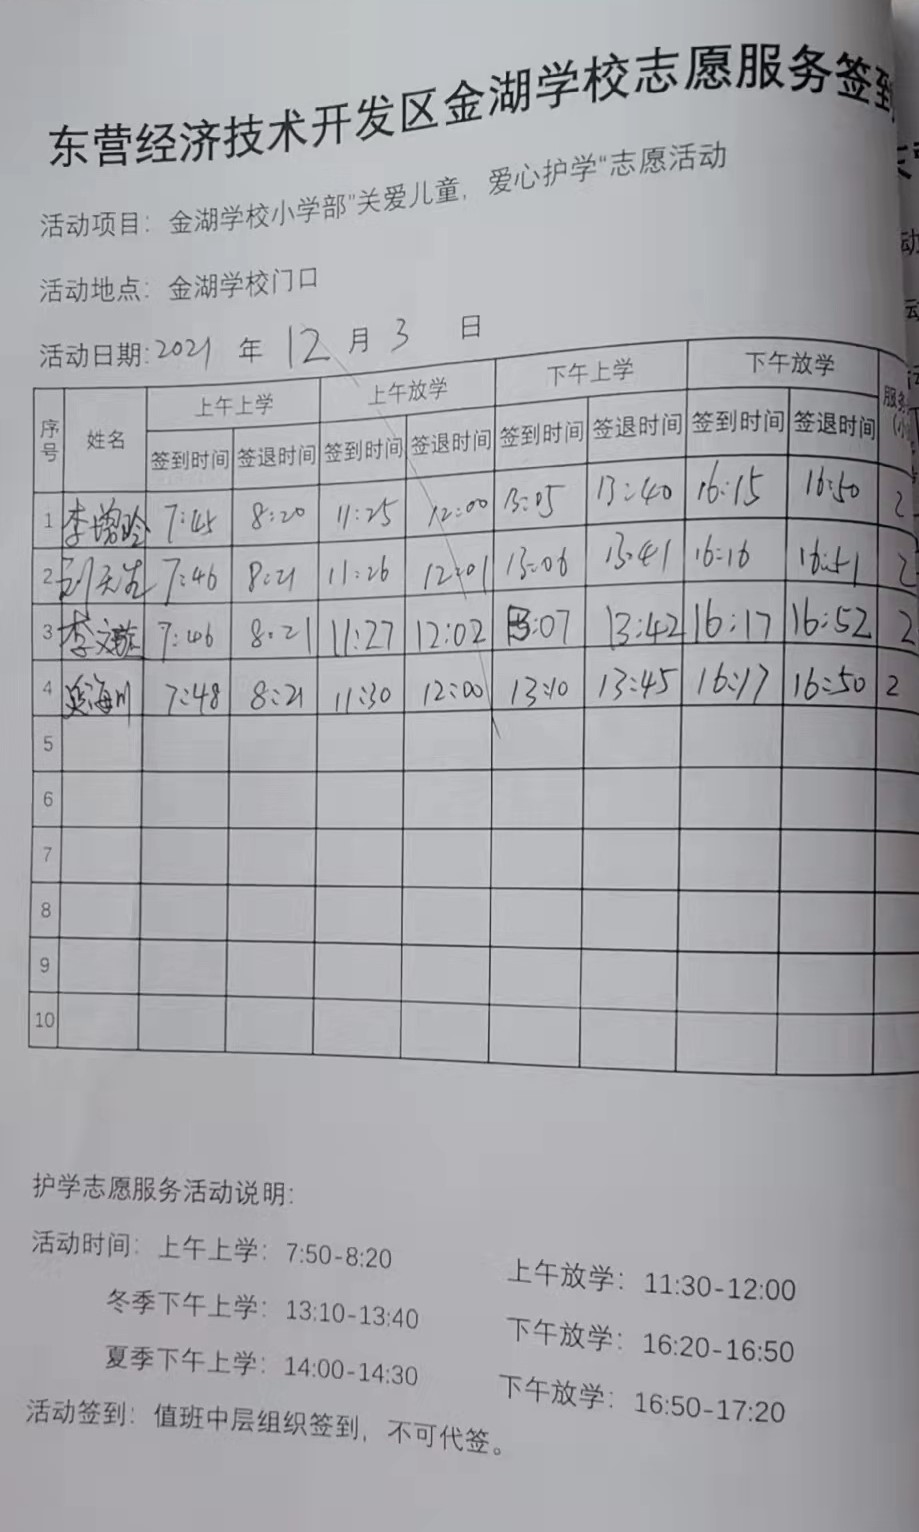 东营经济技术开发区金湖学校志愿服务签到
活动项目：金湖学校小学部"关爱儿童，爱心护学"志愿活动
活动地点：金湖学校门口
活动日期:2021 年 12 月 3 日
序号 姓名 上午上学 上午放学 下午上学 下午放学 服务
签到时间 签退时间 签到时间 签退时间 签到时间 签退时间 签到时间 签退时间
1 李增玲 7:45 8:20 11:25 12:00 13:05 13:40 16:15 16:50 2
2 7:46 8:21 11:26 12:01 13:06 13:41 16:16 16:51 2
3 李文 7:46 8:21 11:27 12:02 13:07 13:42 16:17 16:52 2
4 海川 7:48 8:21 11:30 12:00 13:10 13:45 16:17 16:50 2
5
6
7
8
9
10
护学志愿服务活动说明:
活动时间：上午上学：7:50-8:20 上午放学：11:30-12:00
冬季下午上学：13:10-13:40 下午放学：16:20-16:50
夏季下午上学：14:00-14:30 下午放学：16:50-17:20
活动签到：值班中层组织签到，不可代签。